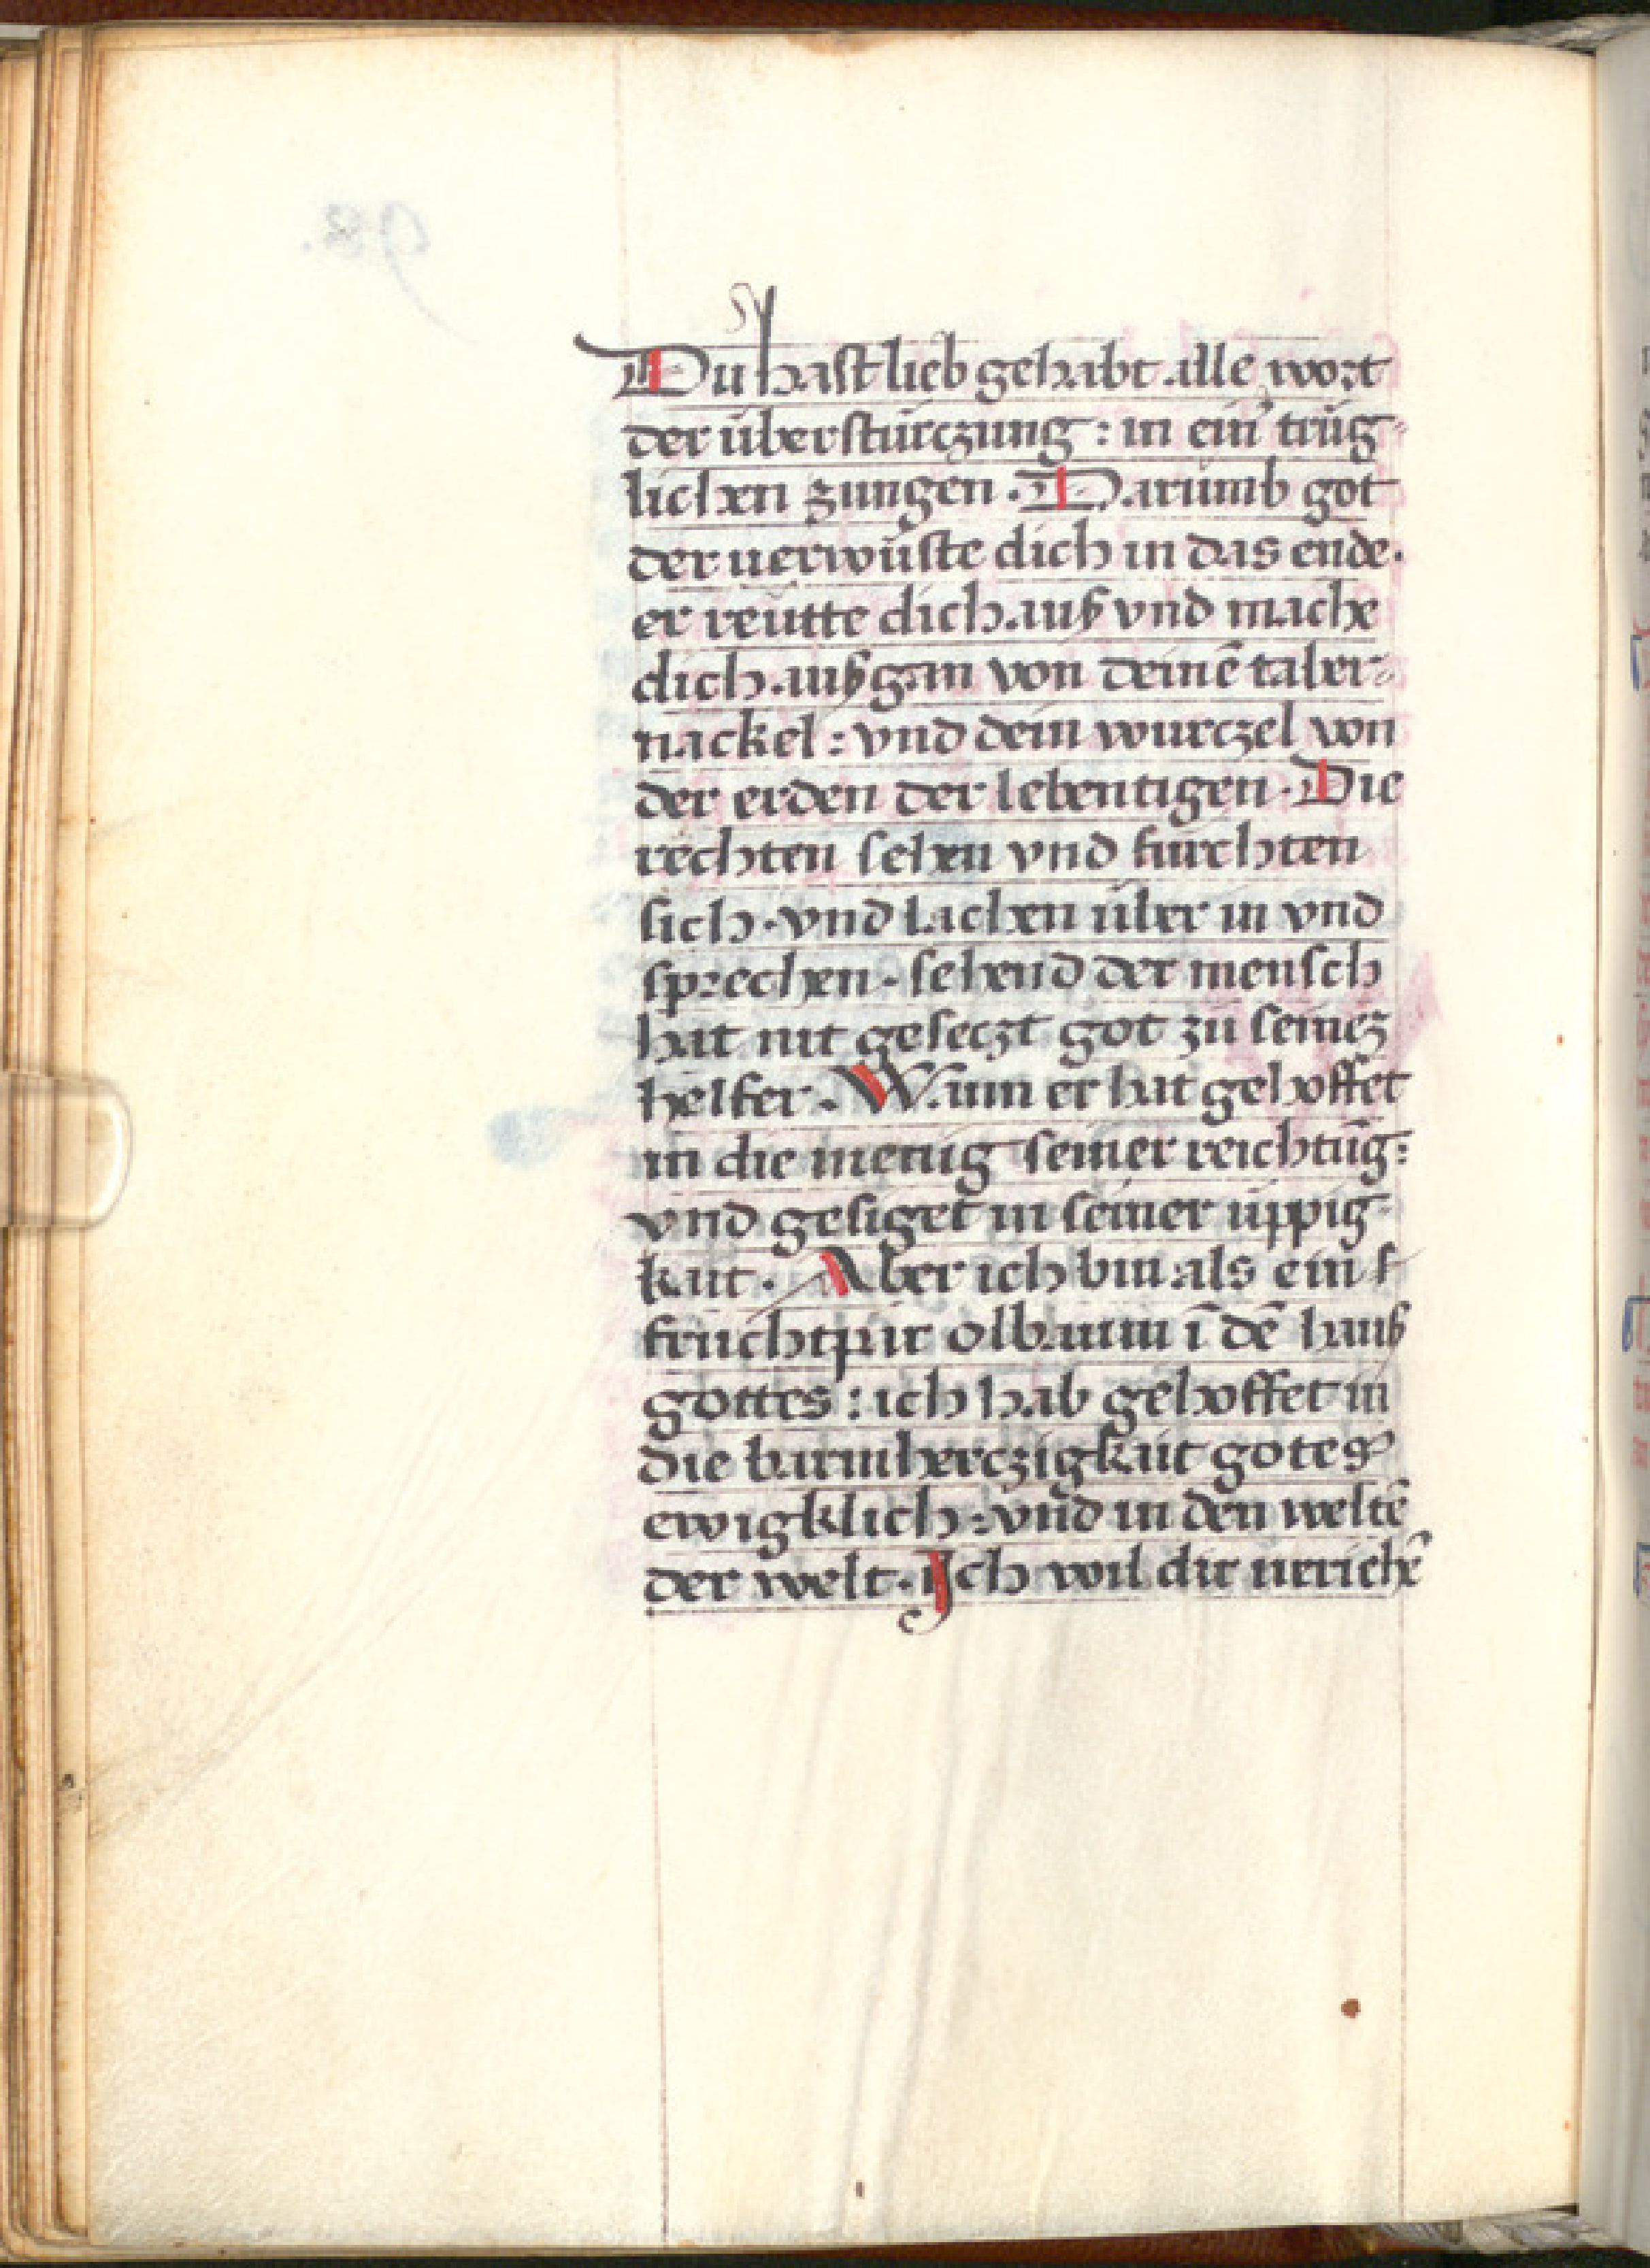 Du hast lieb gehabt alle wort
der überstürczung : in ein̄ trüg-
lichen zungen . Darümb got
der uerwüste dich in das ende .
er reütte dich auß vnd mache
dich außgan von deinē taber-
nackel : vnd dein wurczel von
der erden der lebentigen . Die
rechten sehen vnd fürchten
sich . vnd lachen über in vnd
sprechen . sehend der mensch
hat nit geseczt got zu seinez
helfer . Wann er hat gehoffet
in die menig seiner reichtüg :
vnd gesiget in seiner üppig-
kait . Aber ich bin als ein
fruchtpar olbaum ī dē hauß
gottes : ich hab gehoffet in
die barmherczigkait gotes
ewigklich : vnd in den weltē
der welt . Ich wil dir ueriehē